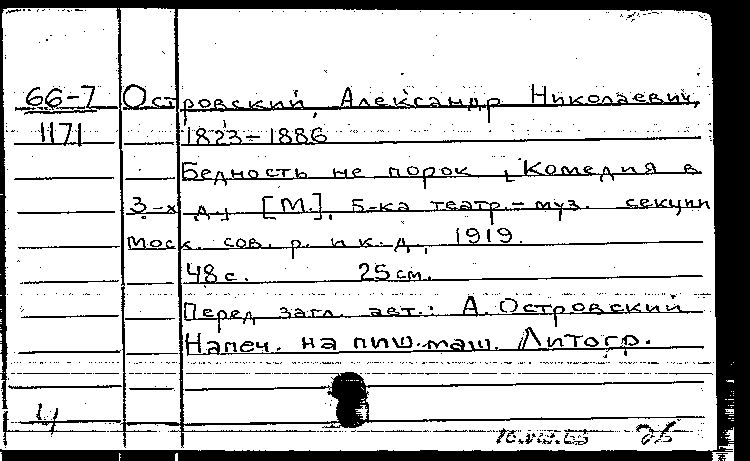 66-7 Островский, Александр Николаевич,
1171 1823-1886
Бедность не порок. Комедия в
3-х д., [М.], Б-ка театр.-муз. секции
моск. сов. р. и к. д., 1919.
48 с. 25 см.
Перед загл. авт.: А. Островский
Напеч. на пиш. маш. Литогр.